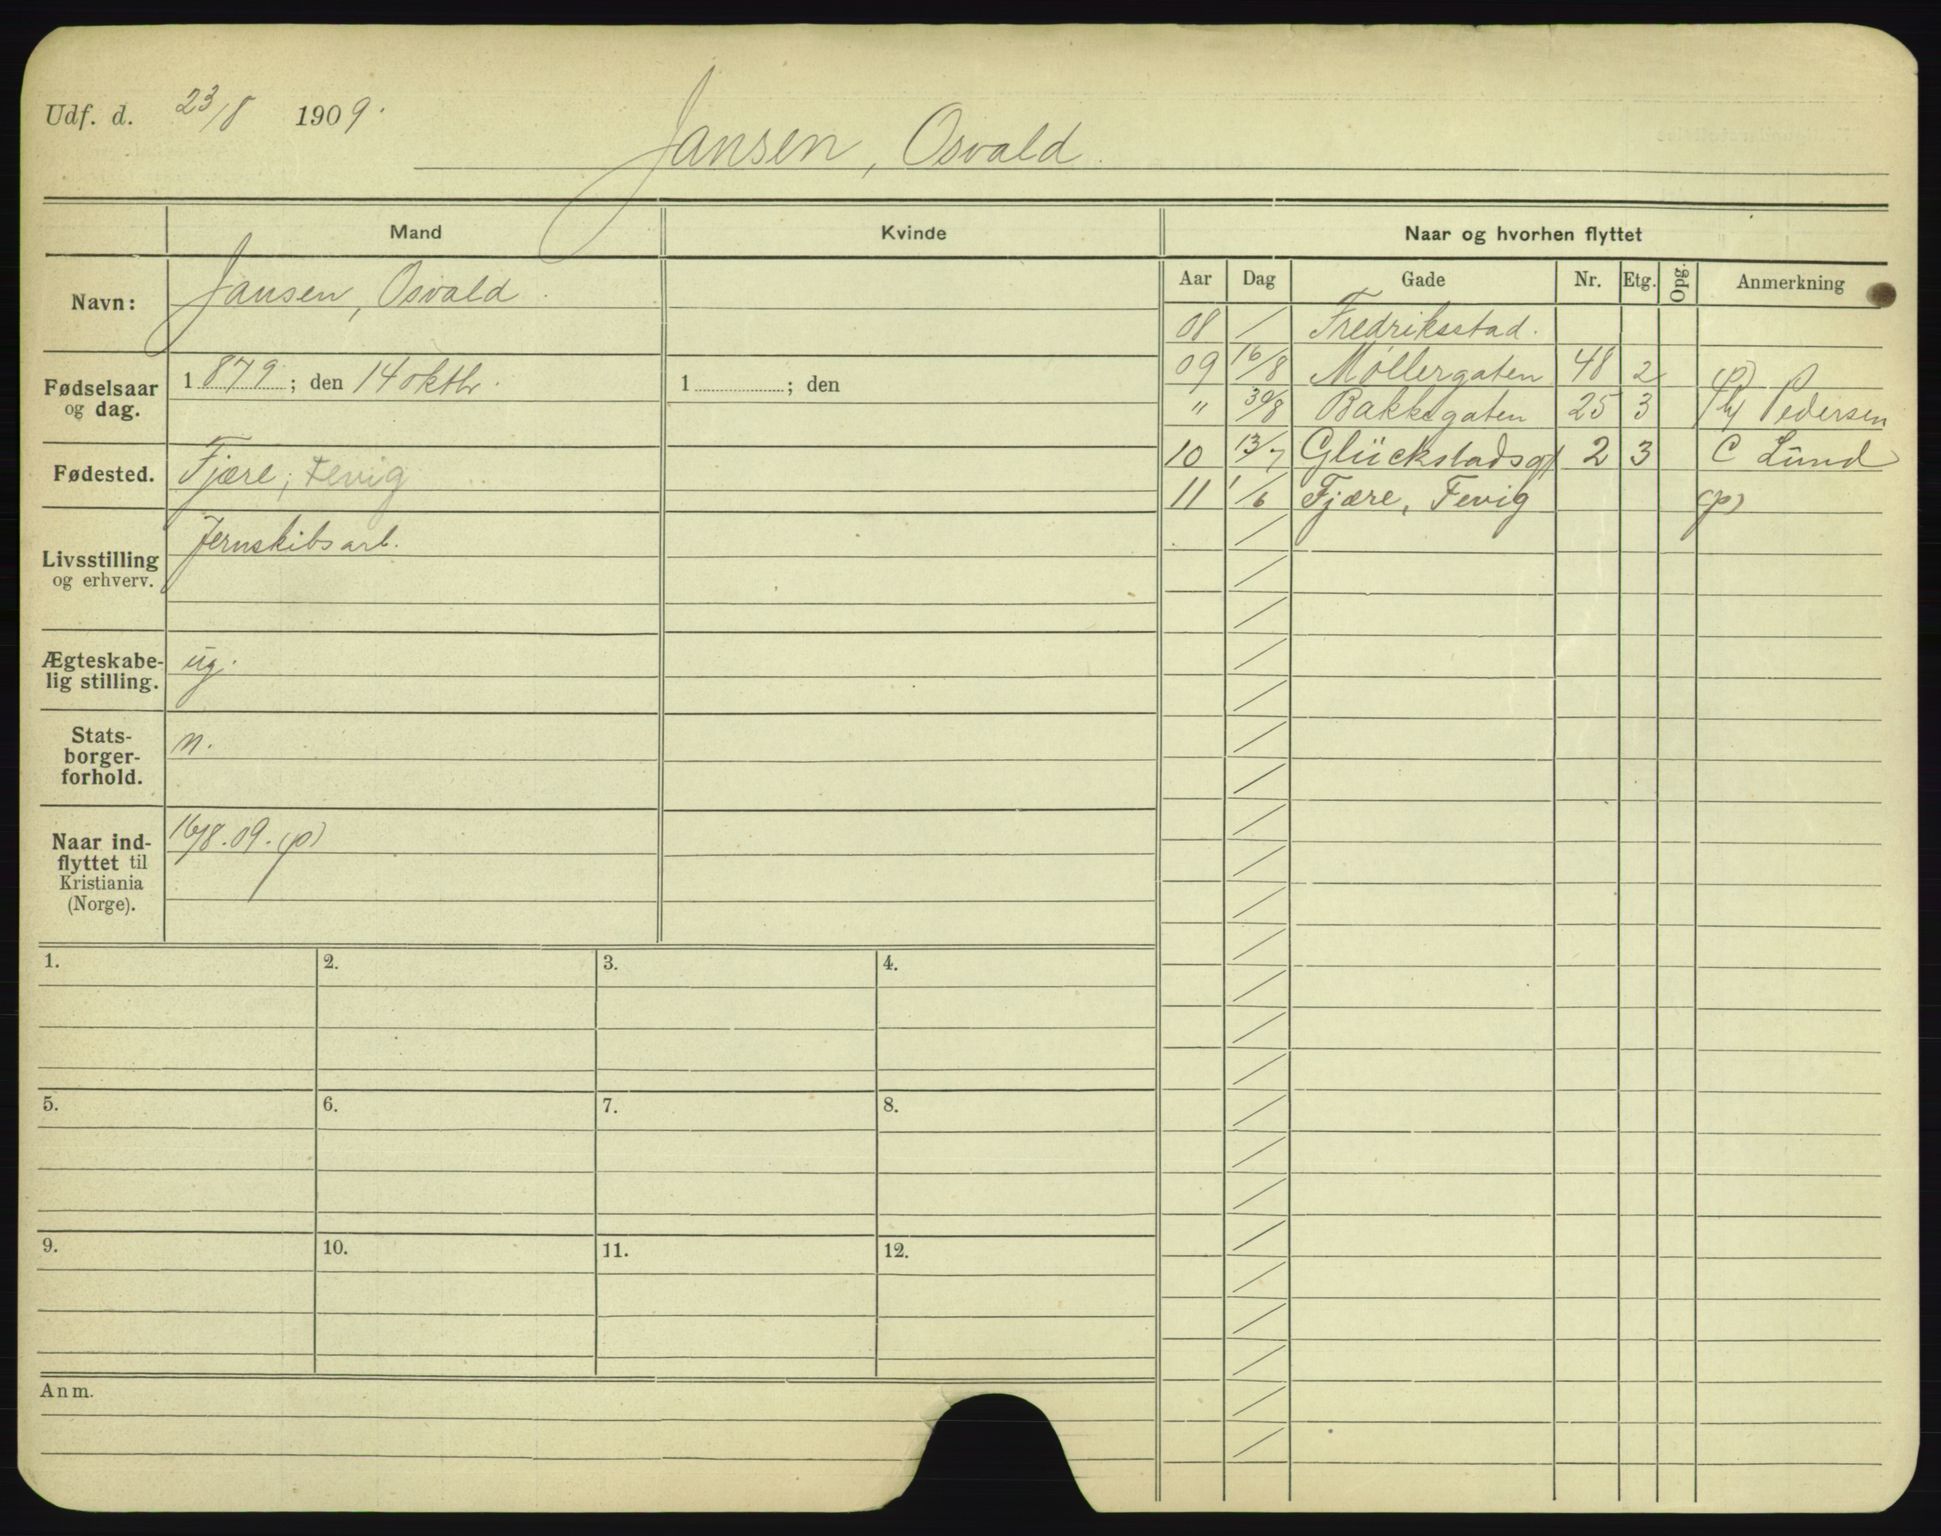 Udf. d. 23/8 1909.
Jansen, Osvald.
Mand Kvinde Naar og hvorhen flyttet
Navn: Jansen, Osvald.
Fødselsaar og dag. 1879; den 14 oktbr. 1 ; den
Fødested. Fjære; Fevig
Livsstilling og erhverv. Jernskibsarb.
Ægteskabe-
lig stilling. ug.
Stats-
borger-
forhold. n.
Naar ind-
flyttet til
Kristiania
(Norge). 16/8.09. (p)
Aar Dag Gade Nr. Etg. Opg. Anmerkning
08 / Fredriksstad.
09 16/8 Møllergaten 48 2 (p)
" 30/8 Bakkegaten 25 3 Pedersen
10 13/7 Glückstadsg 2 3 C Lund
11 1/6 Fjære, Fevig (p)
1. 2. 3. 4.
5. 6. 7. 8.
9. 10. 11. 12.
Anm.